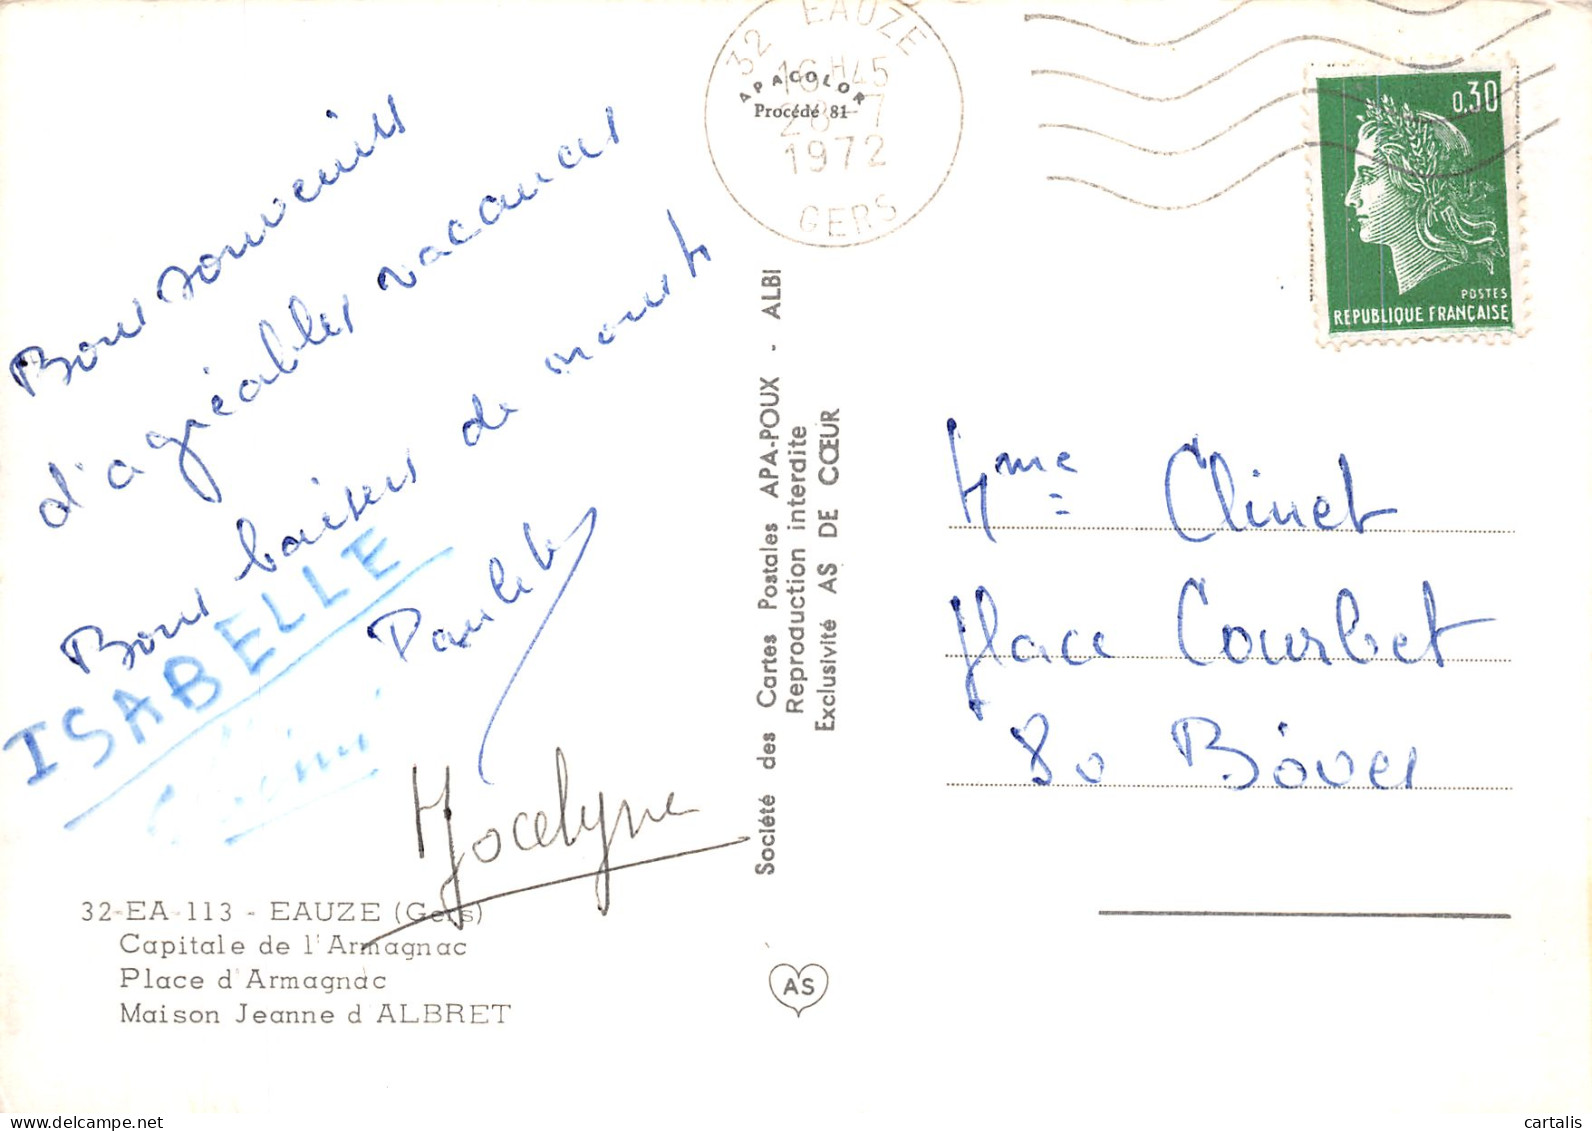 Bons souvenirs
d'agréables vacances
Bons baisers de nous tr
Paulette
ISABELLE
Jocelyne
32-EA-113 - EAUZE (Gers)
Capitale de l'Armagnac
Place d'Armagnac
Maison Jeanne d'ALBRET
32 EAUZE
16H45
28-7
1972
GERS
APACOLOR
Procédé 81
Société des Cartes Postales APA-POUX - ALBI
Reproduction interdite
Exclusivité AS DE CŒUR
AS
0,30
POSTES
REPUBLIQUE FRANÇAISE
Mme Clinet
place Courbet
80 Boves
cartalis